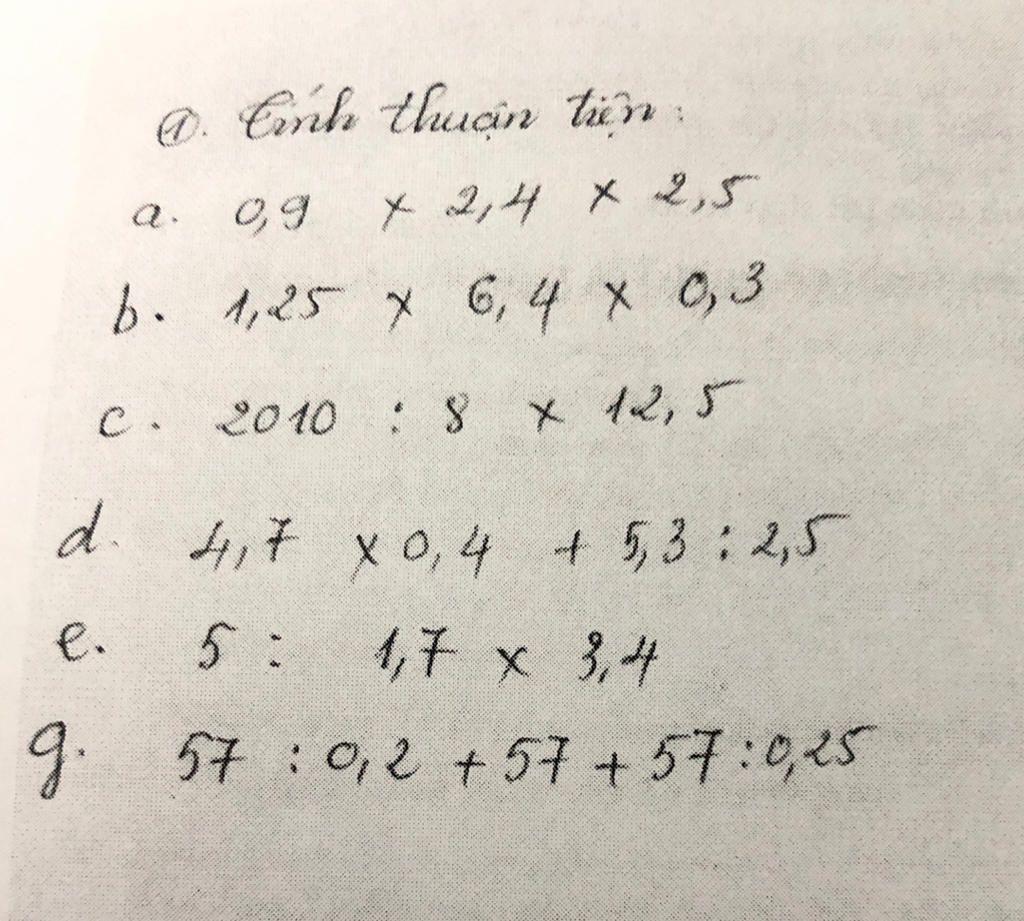 ①. Tính thuận tiện:
a. 0,9 x 2,4 x 2,5
b. 1,25 x 6,4 x 0,3
c. 2010 : 8 x 12,5
d. 4,7 x 0,4 + 5,3 : 2,5
e. 5 : 1,7 x 3,4
g. 57 : 0,2 + 57 + 57 : 0,25